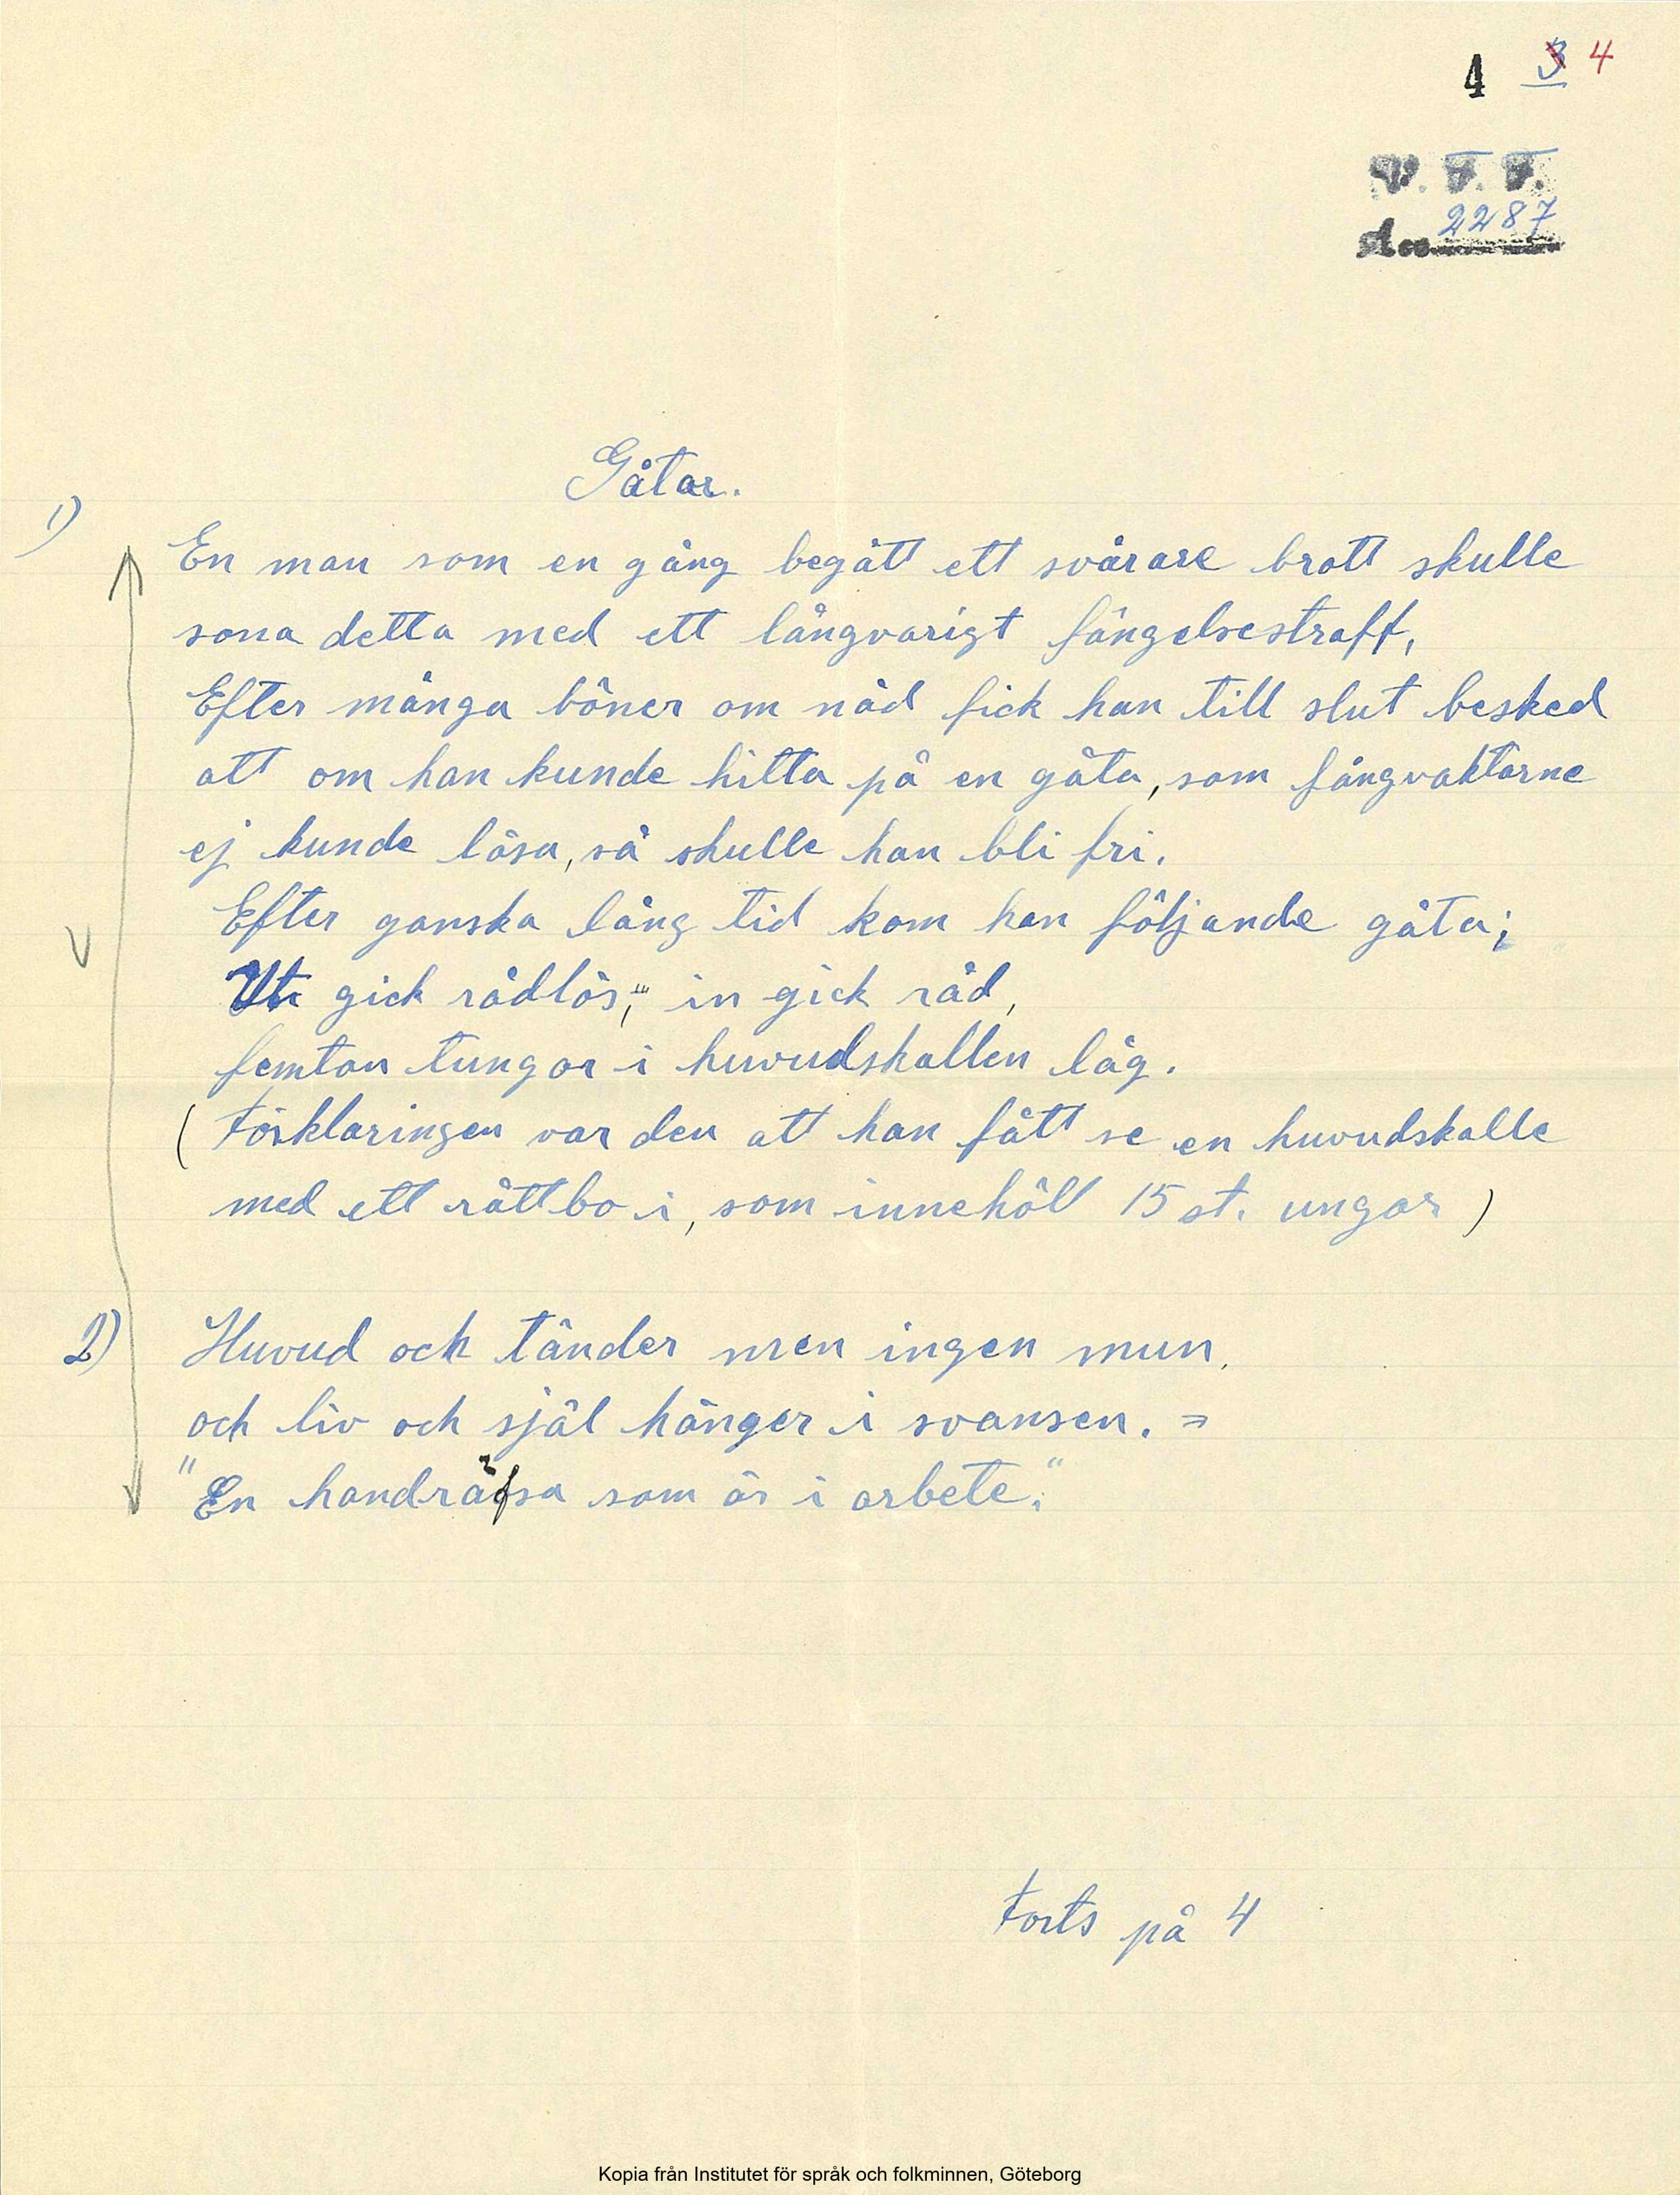 4 3 4
V. F. F.
2287
Gåtor.
1)
En man som en gång begått ett svårare brott skulle
sona detta med ett långvarigt fängelsestraff.
Efter många böner om nåd fick han till slut besked
att om han kunde hitta på en gåta, som fångvaktarne
ej kunde lösa, så skulle han bli fri.
Efter ganska lång tid kom han följande gåta;
V
Ut gick rådlös, in gick råd,
femton tungor i huvudskallen låg.
(Förklaringen var den att han fått se en huvudskalle
med ett råttbo i, som innehöll 15 st. ungar)
2) Huvud och tänder men ingen mun,
och liv och själ hänger i svansen. =
"En handräfsa som är i arbete."
Forts på 4
Kopia från Institutet för språk och folkminnen, Göteborg